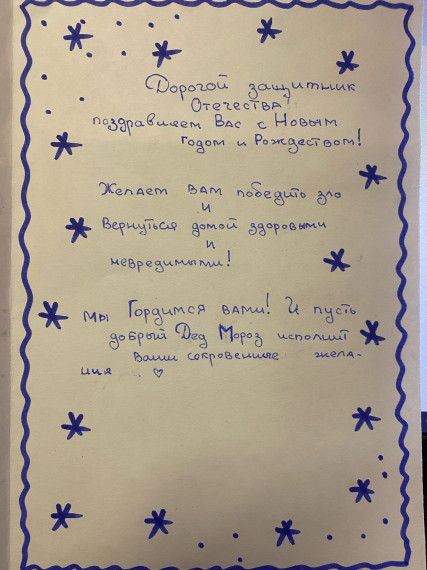 Дорогой защитник
Отечества!
поздравляем Вас с Новым
годом и Рождеством!
Желаем вам победить зло
и
вернуться домой здоровыми
и
невредимыми!
Мы Гордимся вами! И пусть
добрый Дед Мороз исполнит
Ваши сокровенные жела-
ния ♡